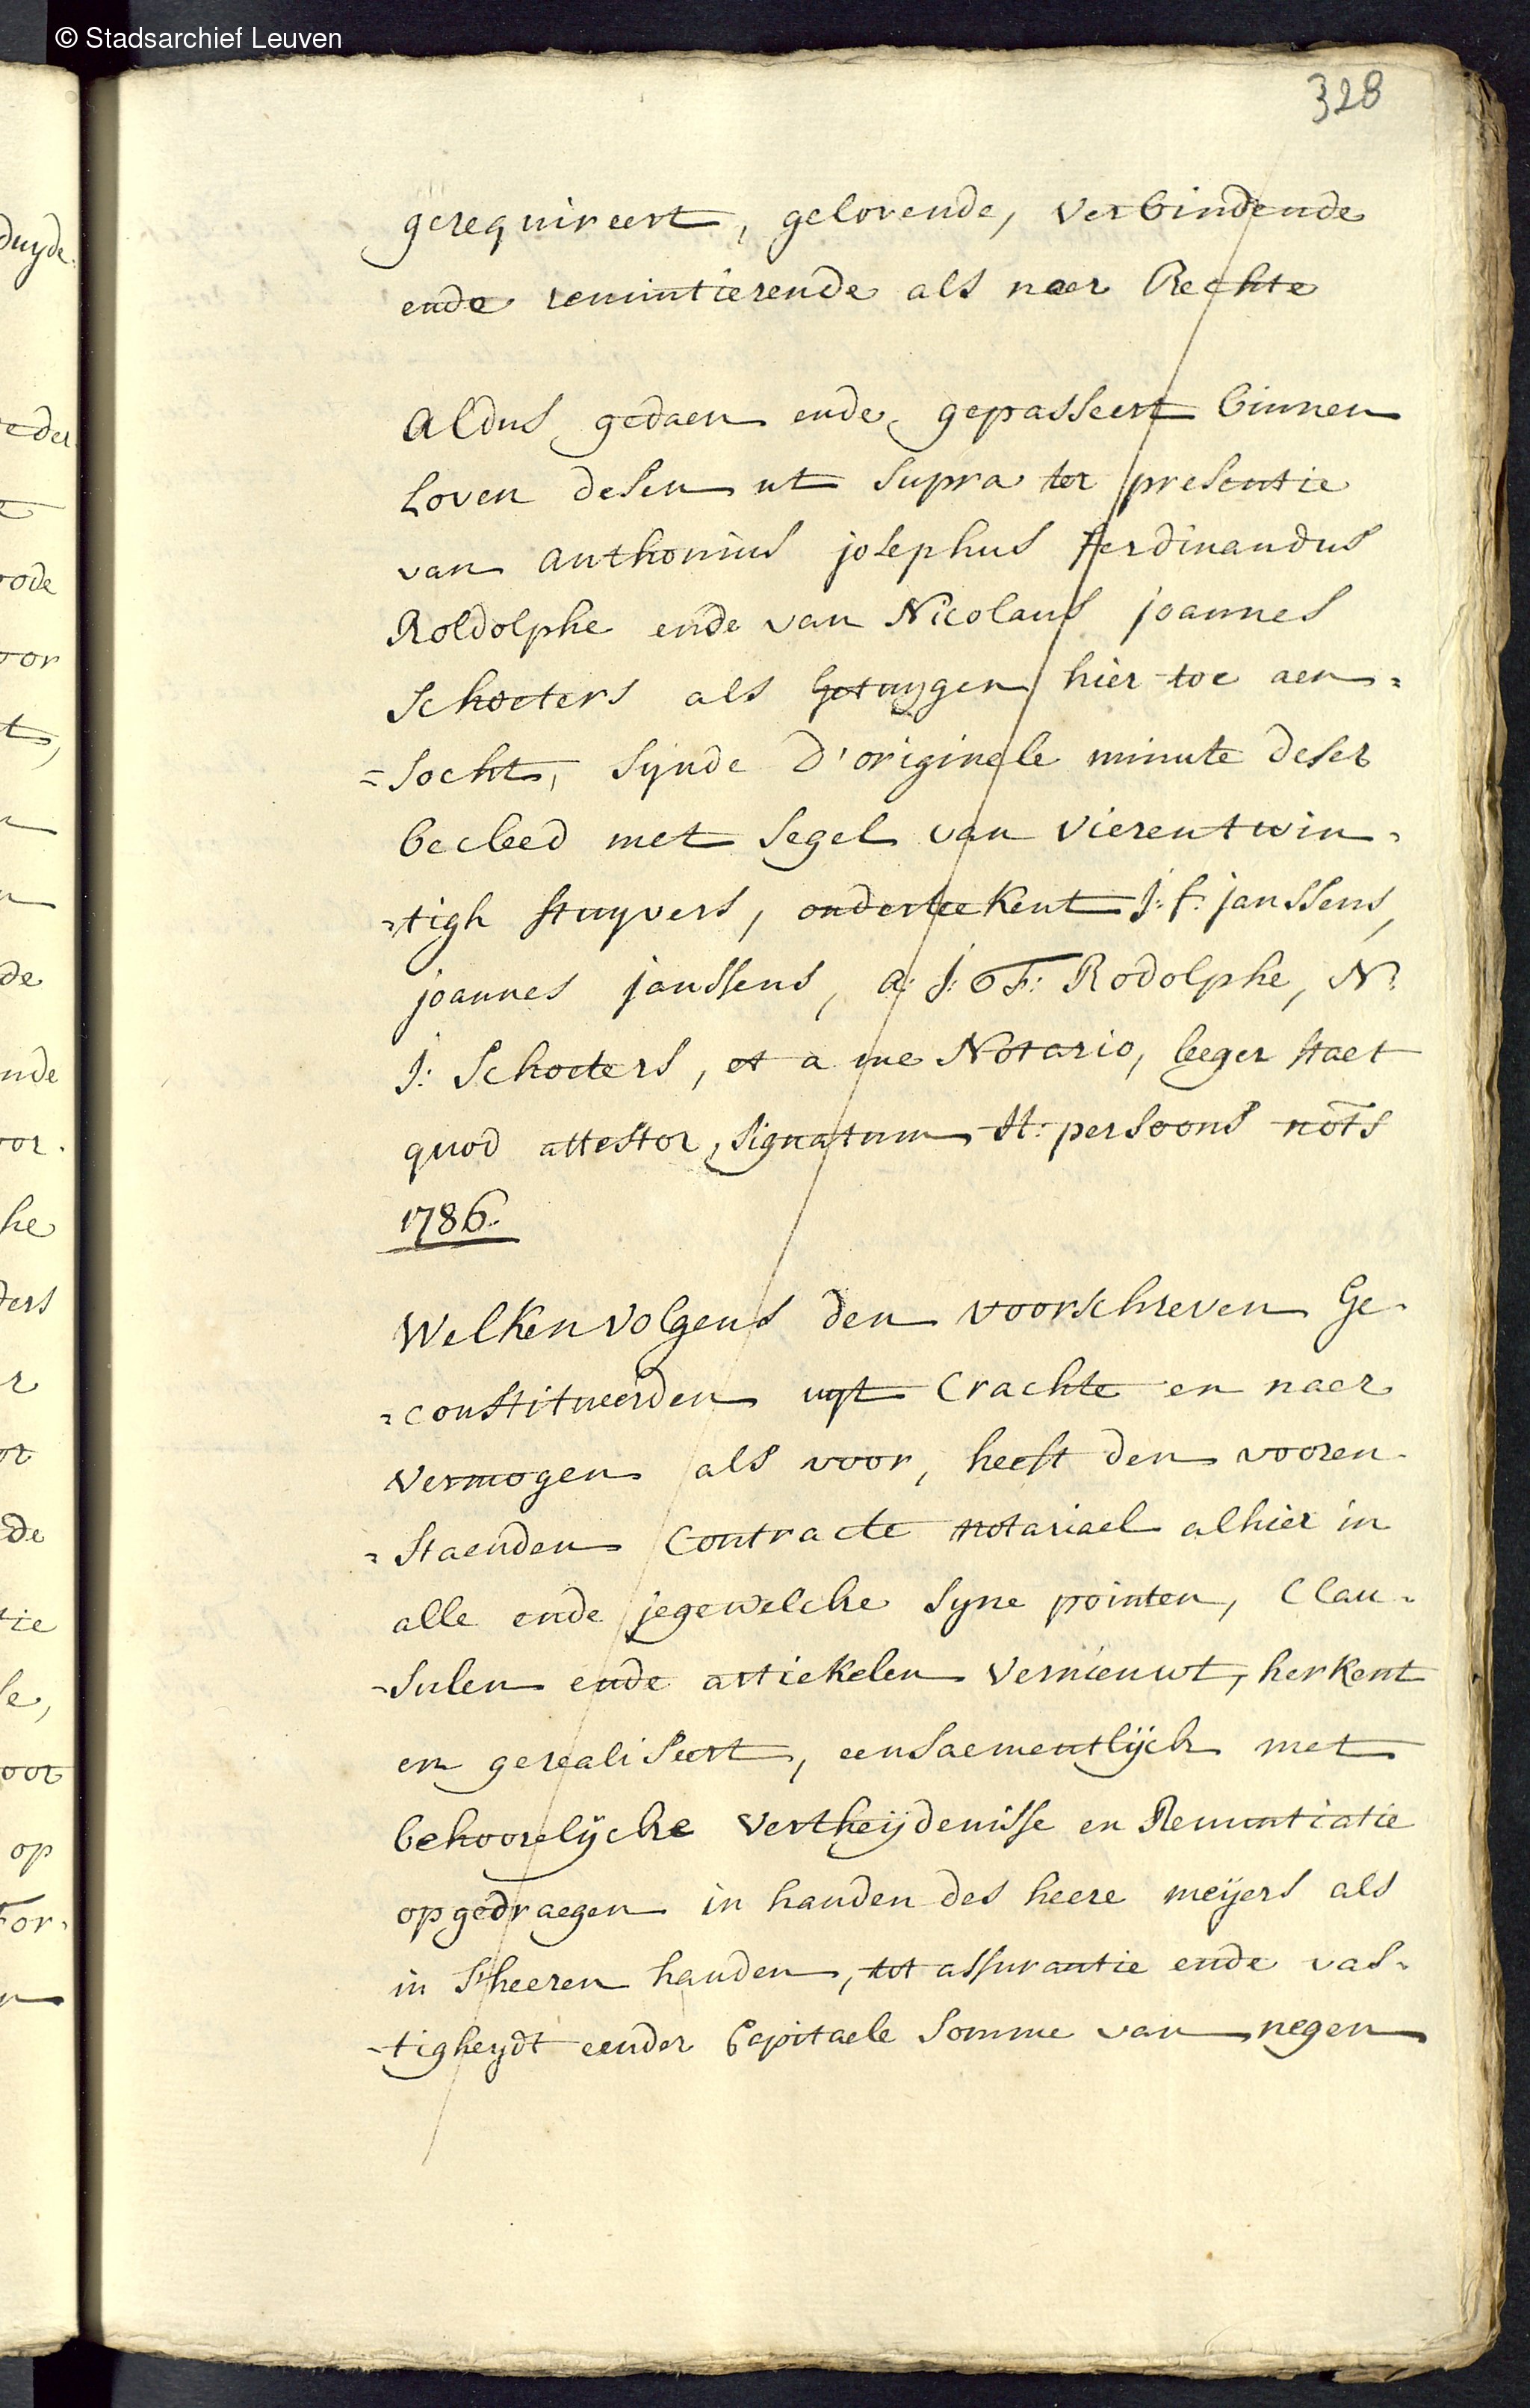 © Stadsarchief Leuven
328
gerequireert, gelovende, verbindende
ende renuntierende als naer Rechte
Aldus gedaen ende gepasseert binnen
Loven desen ut supra ter presentie
van anthonius josephus ferdinandus
Roldolphe ende van Nicolaus joannes
Schoeters als getuygen hier toe aen=
=socht, synde d'originele minute deser
becleed met segel van vierentwin=
=tigh stuyvers, onderteekent J: f: janssens,
joannes janssens, a: J: F: Rodolphe, N:
J: Schoeters, et a me Notario, leeger staet
quod attestor, signatum H: persoons nots
1786.
Welkenvolgens den voorschreven Ge=
=constitueerden uyt Crachte en naer
vermogen als voor, heeft den vooren=
=staenden Contracte notariael alhier in
alle ende jegewelcke syne pointen, Clau=
=sulen ende artiekelen vernieuwt, herkent
en gerealiseert, eensaementlijck met
behoorelijcke vertheijdenisse en Renuntiatie
opgedraegen in handen des heere meijers als
in s'heeren handen, tot assurantie ende vas=
=tigheydt eender Capitaele somme van negen
duyde
eder
rode
oor
t,
de
nde
oor.
he
ders
r
or
de
tie
se,
oor
op
For=